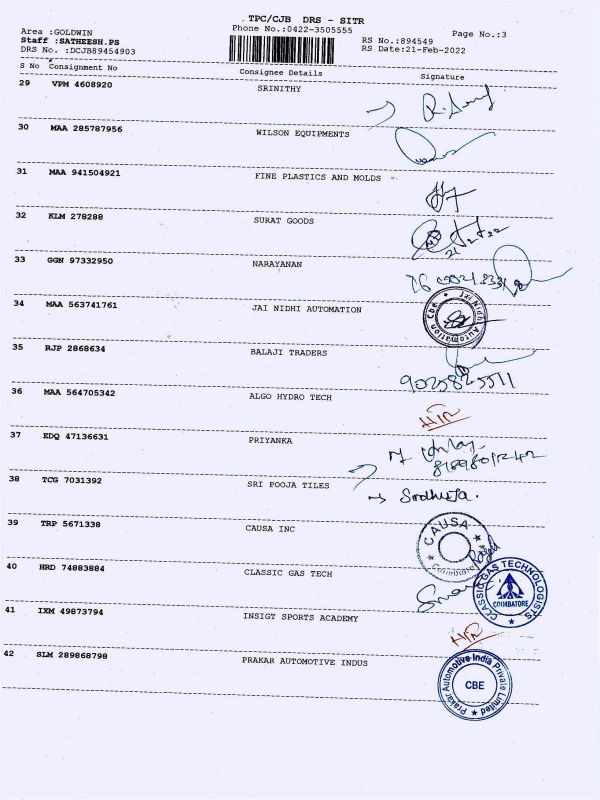 TPC/CJB DRS - SITR
Area :GOLDWIN
Phone No.:0422-3505555
Page No.:3
Staff :SATHEESH.PS
RS No.:894549
DRS No. :DCJB89454903
RS Date:21-Feb-2022
S No Consignment No Consignee Details Signature
29 VPM 4608920 SRINITHY
30 MAA 285787956 WILSON EQUIPMENTS
31 MAA 941504921 FINE PLASTICS AND MOLDS
32 KLM 278288 SURAT GOODS
21
33 GGN 97332950 NARAYANAN
34 MAA 563741761 JAI NIDHI AUTOMATION
Jai Nidhi Automation Cbe
35 RJP 2868634 BALAJI TRADERS
36 MAA 564705342 ALGO HYDRO TECH
37 EDQ 47136631 PRIYANKA
38 TCG 7031392 SRI POOJA TILES
39 TRP 5671338 CAUSA INC
CAUSA
Coimbatore
40 HRD 74883884 CLASSIC GAS TECH
CLASSIC GAS TECHNOLOGISTS
COIMBATORE
41 IXM 49873794 INSIGT SPORTS ACADEMY
42 SLM 289868798 PRAKAR AUTOMOTIVE INDUS
Prakar Automotive India Private Limited
CBE